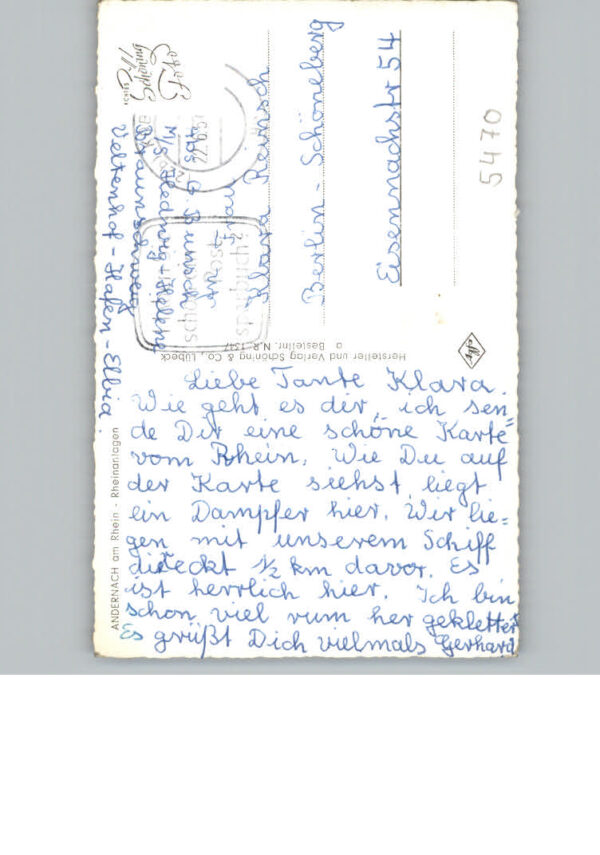 Liebe Tante Klara.
Wie geht es dir, ich sen=
de Dir eine schöne Karte
vom Rhein. Wie Du auf
der Karte siehst, liegt
ein Dampfer hier. Wir lie=
gen mit unserem Schiff
direckt ½ km davor. Es
ist herrlich hier. Ich bin
schon viel rum her geklettert
Es grüßt Dich vielmals Gerhard
Frau
Klara Reinsch
Berlin-Schöneberg
Eisennachstr 54
Abs. G.
M/S Hedwig+Helene
Braunschweig
Veltenhof-Hafen-
5470
ANDERNACH am Rhein - Rheinanlagen
Hersteller und Verlag Schöning & Co., Lübeck
Bestellnr. N.R. 1347
Foto
Schöning
Post
sparbuch